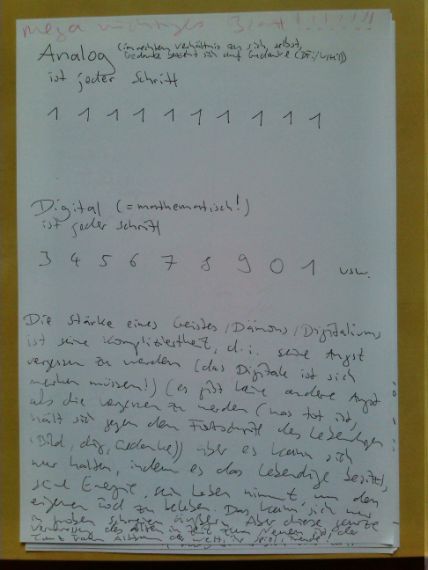 Mega wichtiges Blatt!!!!!!!
Analog (im rechten Verhältnis zu sich selbst,
Gedanke bezieht sich auf Gedanke
ist jeder Schritt
1 1 1 1 1 1 1 1 1 1
Digital (= mathematisch!)
ist jeder Schritt
3 4 5 6 7 8 9 0 1 usw.
Die Stärke eines Geistes / Dämons / Digitaliums
ist seine Kompliziertheit, d.i. seine Angst
vergessen zu werden (das Digitale ist sich
merken müssen!) (es gibt keine andere Angst
als die vergessen zu werden (was tot ist,
hält sich gegen den Fortschritt des Lebendigen
(Bild, dig. Gedanke)) aber es kann sich
nur halten, indem es das Lebendige besitzt,
seine Energie, sein Leben nimmt, um den
eigenen Tod zu beleben. Das kann sich nur
in großen äußern. Aber diese
des Alten in zum Neuen ist der
Tanz der Welt,